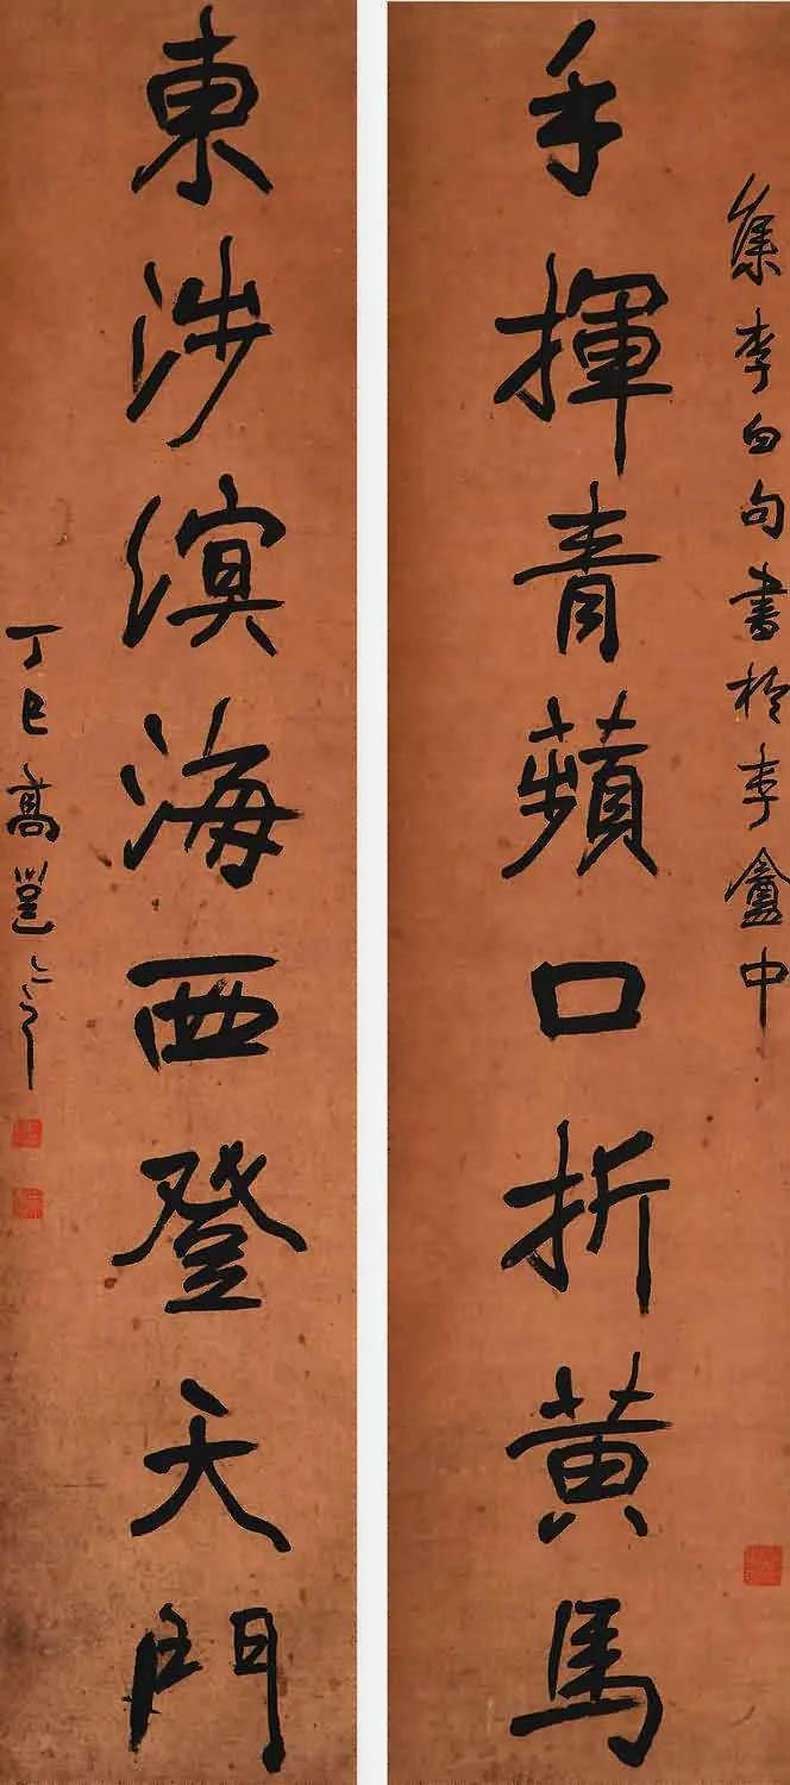 集李白句書於李盦中
手揮青蘋口折黃馬
東涉溟海西登天門
丁巳高邕